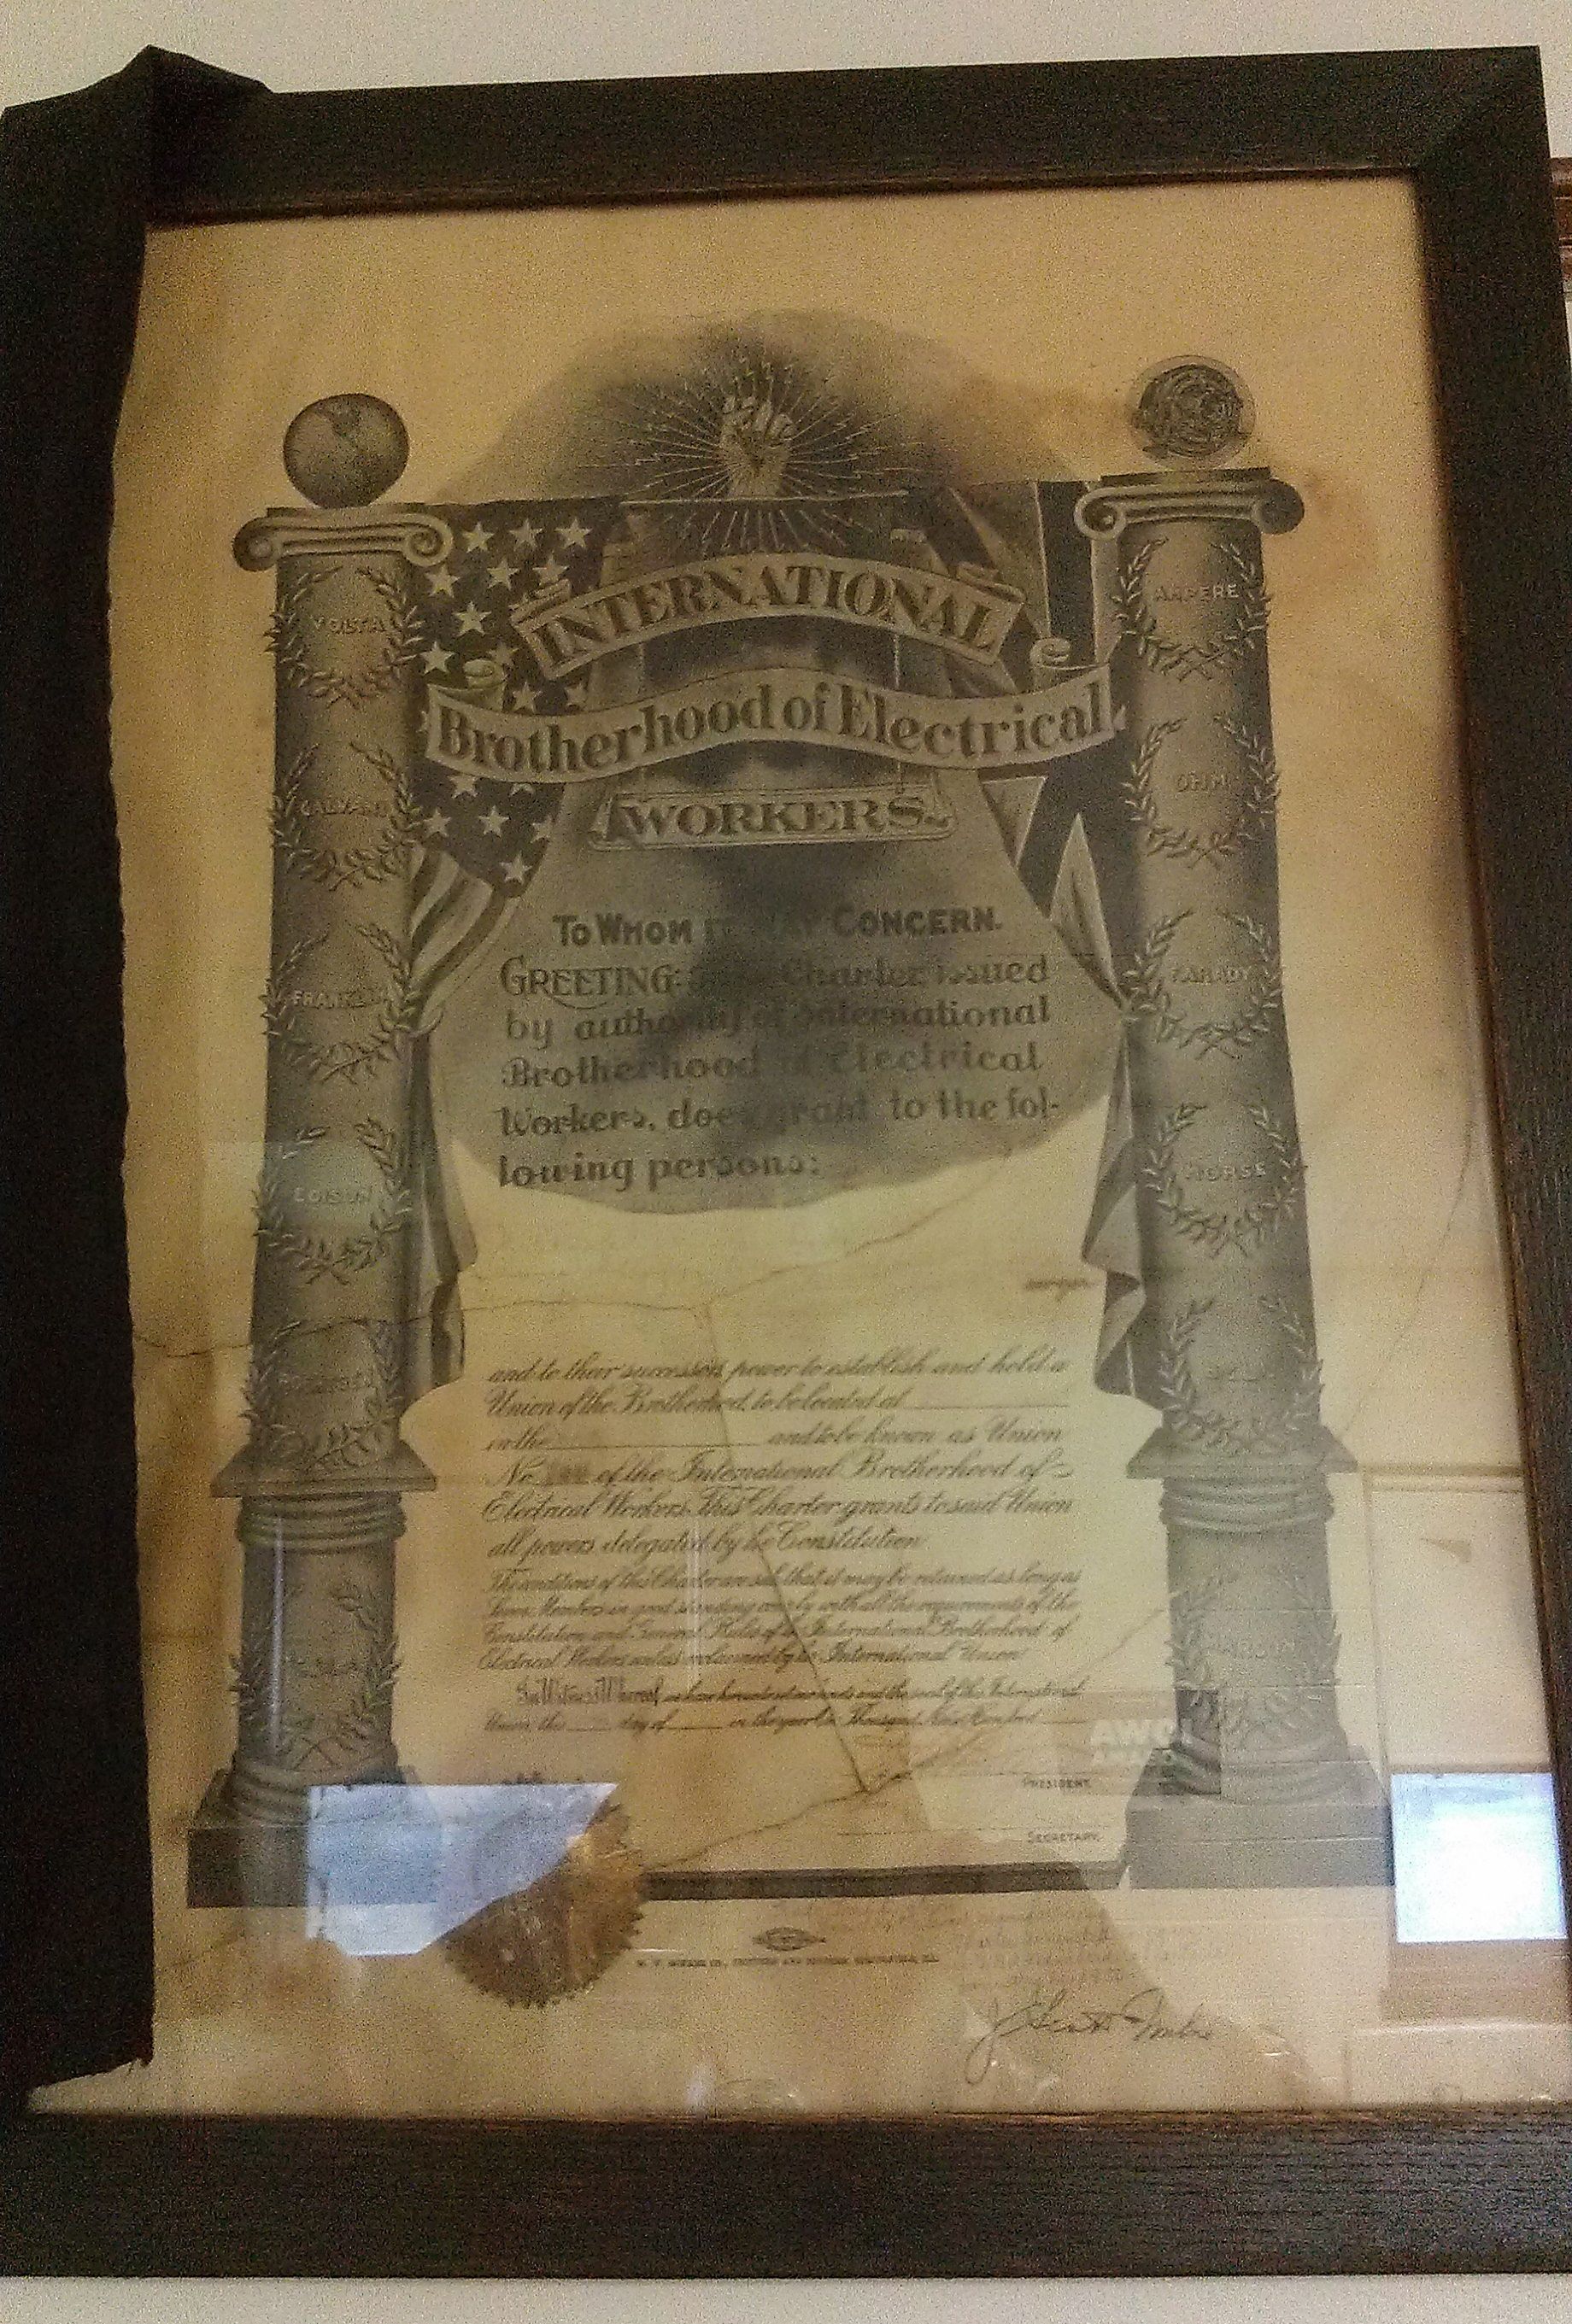 INTERNATIONAL
Brotherhood of Electrical
WORKERS
VOLTA
AMPERE
GALVANI
OHM
FRANKLIN
FARADAY
EDISON
MORSE
BELL
TO WHOM IT MAY CONCERN.
GREETING: Charter issued
by authority of International
Brotherhood of Electrical
Workers, does grant to the fol-
lowing persons:
and to their successors power to establish and hold a
Union of the Brotherhood, to be located at
in the and to be known as Union
No. of the International Brotherhood of
Electrical Workers. This Charter grants to said Union
all powers delegated by the Constitution
The conditions of this Charter are such that it may be retained as long as
Seven Members in good standing comply with all the requirements of the
Constitution and General Rules of the International Brotherhood of
Electrical Workers unless reclaimed by the International Union
In Witness Whereof, we have hereunto set our hands and the seal of the International
Union, this day of in the year One Thousand Nine Hundred
PRESIDENT.
SECRETARY.